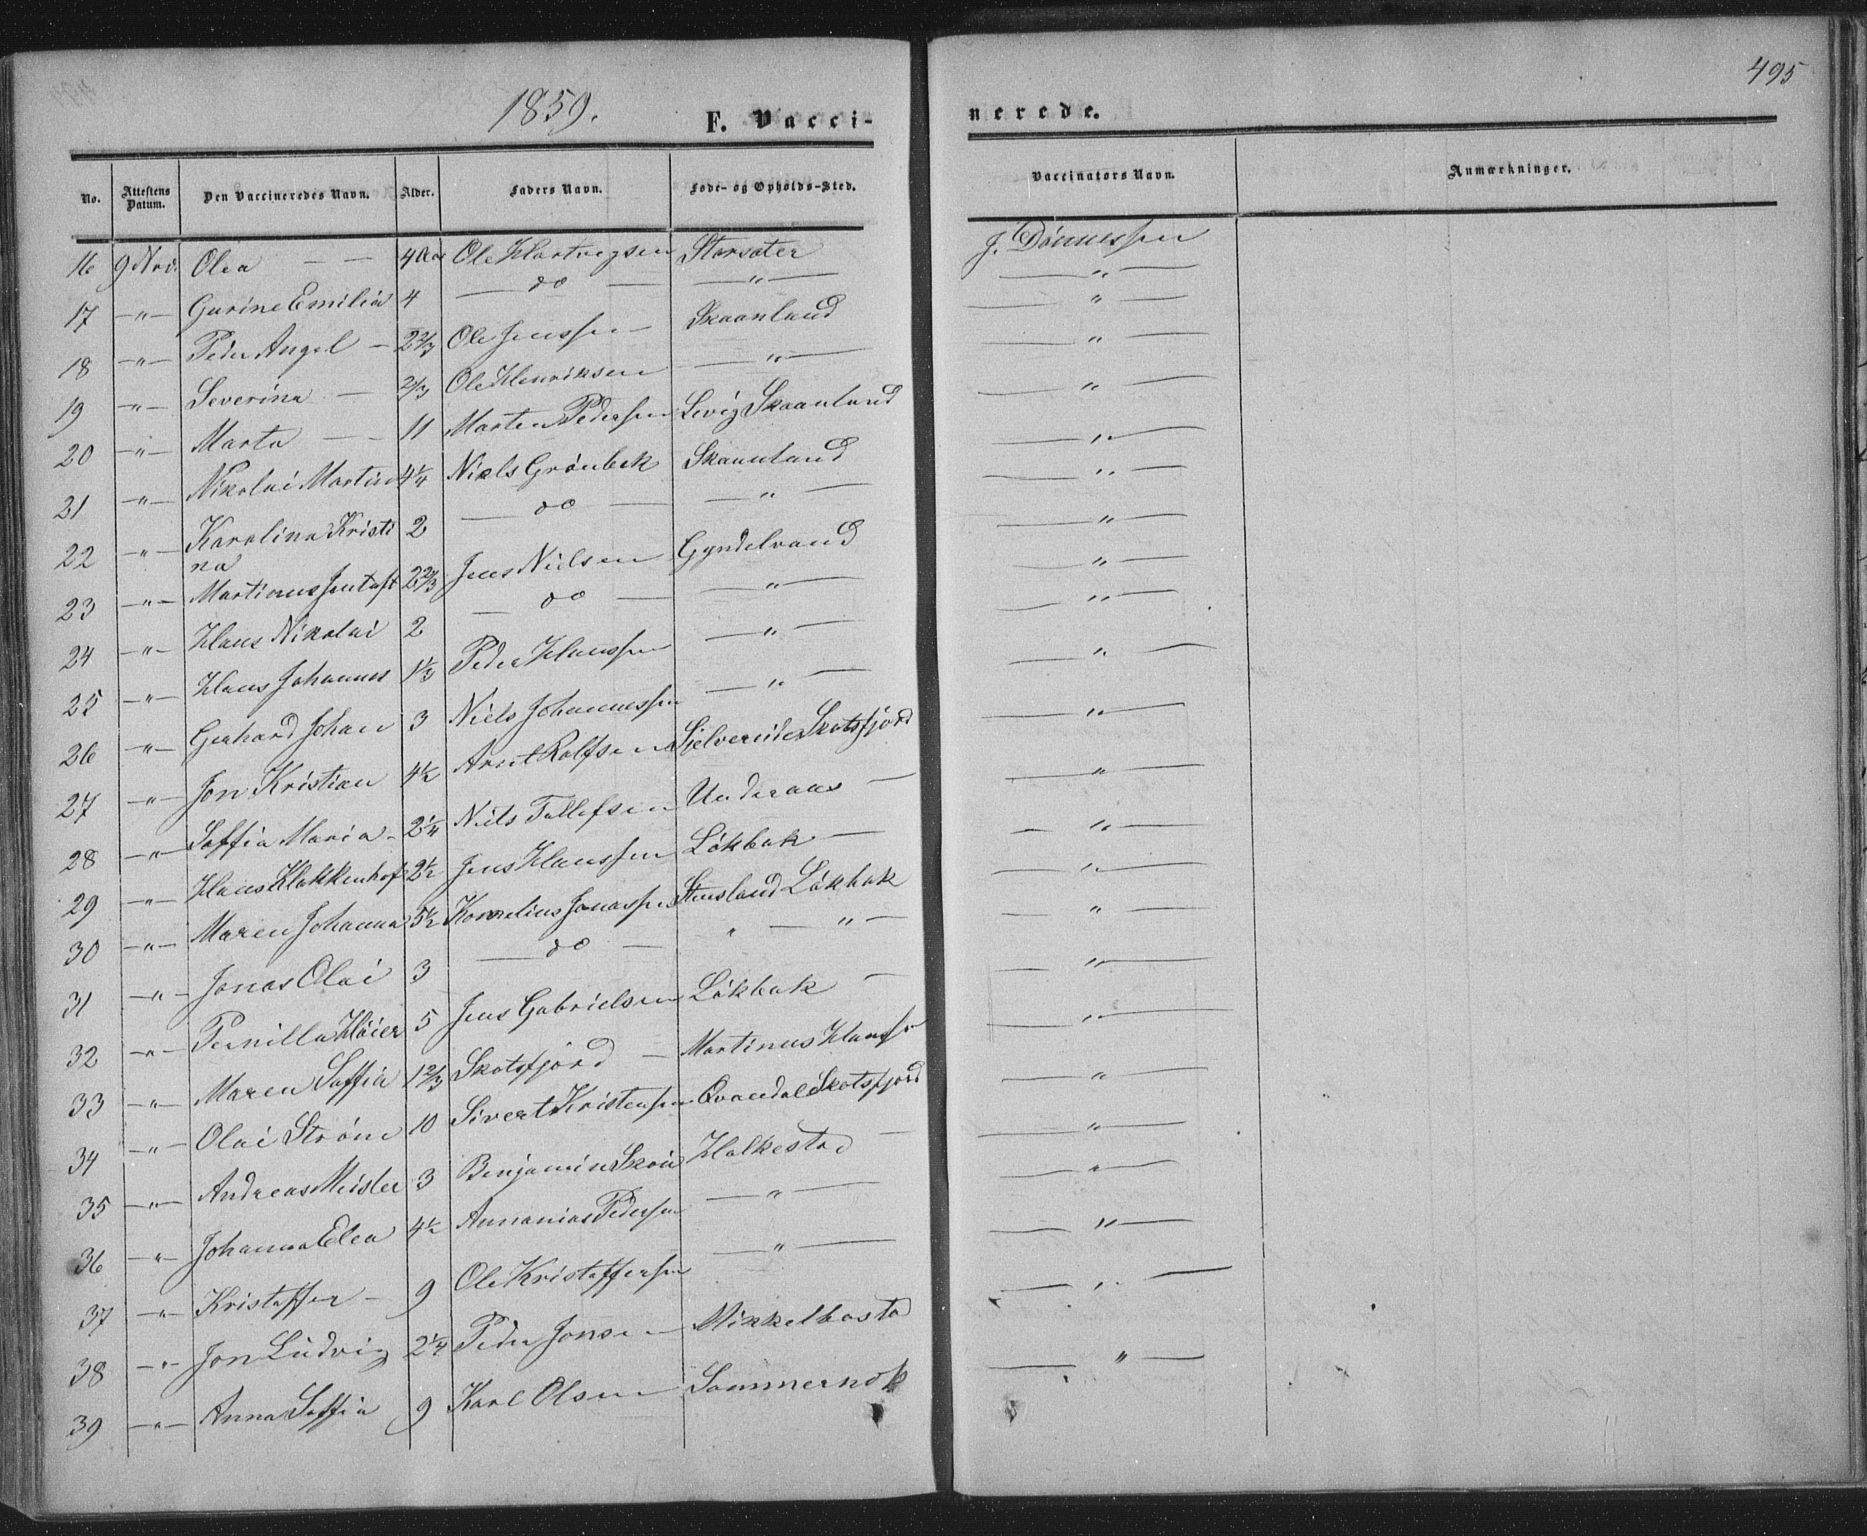 495
1859.
F. Vacci-
nerede.
No. Attestens Datum. Den Vaccineredes Navn. Alder. Faders Navn. Føde- og Opholds-Sted. Vaccinators Navn. Anmærkninger.
16 9 Nov. Olea — — 4 Aar Ole Hartvigsen Storsæter J. Dønnessen
17 —"— Gurine Emilia 4 — do — —"— —"—
18 —"— Peder Angel — 2 2/3 Ole Jenssen — Skaanland —"—
19 —"— Severina — 2/3 Ole Henriksen —"— —"—
20 —"— Marta — — 11 Morten Pedersen Levig Skaanland —"—
21 —"— Nikolai Martin 4 1/4 Niels Grönbek Skaanland —"—
22 —"— Karolina Kristi 2 — do — —"— —"—
na
23 —"— Martinus Jentoft 2 2/3 Jens Nielsen Gyndelvand —"—
24 —"— Hans Nikolai 2 — do — —"— —"—
25 —"— Hans Johannes 1 1/3 Peder Hanssen —"— —"—
26 —"— Gerhard Johan 3 Niels Johannessen —"— —"—
27 —"— Jon Kristian 4 1/2 Arnt Rolfsen Skotsfjord —"—
28 —"— Soffia Maria — 2 1/4 Niels Tollefsen Underaas — —"—
29 —"— Hans Klokkenhof 2 1/2 Jens Hanssen Lökbak — —"—
30 —"— Maren Johanna 5 1/2 Kornelius Jonassen Stensland Lökbak —"—
31 —"— Jonas Olai 3 — do — " — " — —"—
32 —"— Pernilla Höier 5 Jens Gabrielsen Lökbak — —"—
33 —"— Maren Soffia 1 2/3 Skotsfjord — Martinus Hanssen —"—
34 —"— Olai Ström 10 Sivert Kristensen Qvandal Skotsfjord —"—
35 —"— Andreas Meisler 3 Benjamin Skon Halkestad — —"—
36 —"— Johanna Elea 4 1/2 Annanias Pedersen —"— —"—
37 —"— Kristoffer — 9 Ole Kristoffersen —"— —"—
38 —"— Jon Ludvig 2 1/4 Peder Jonsen Mikkelbostad —"—
39 —"— Anna Soffia 9 Karl Olsen Sommernok